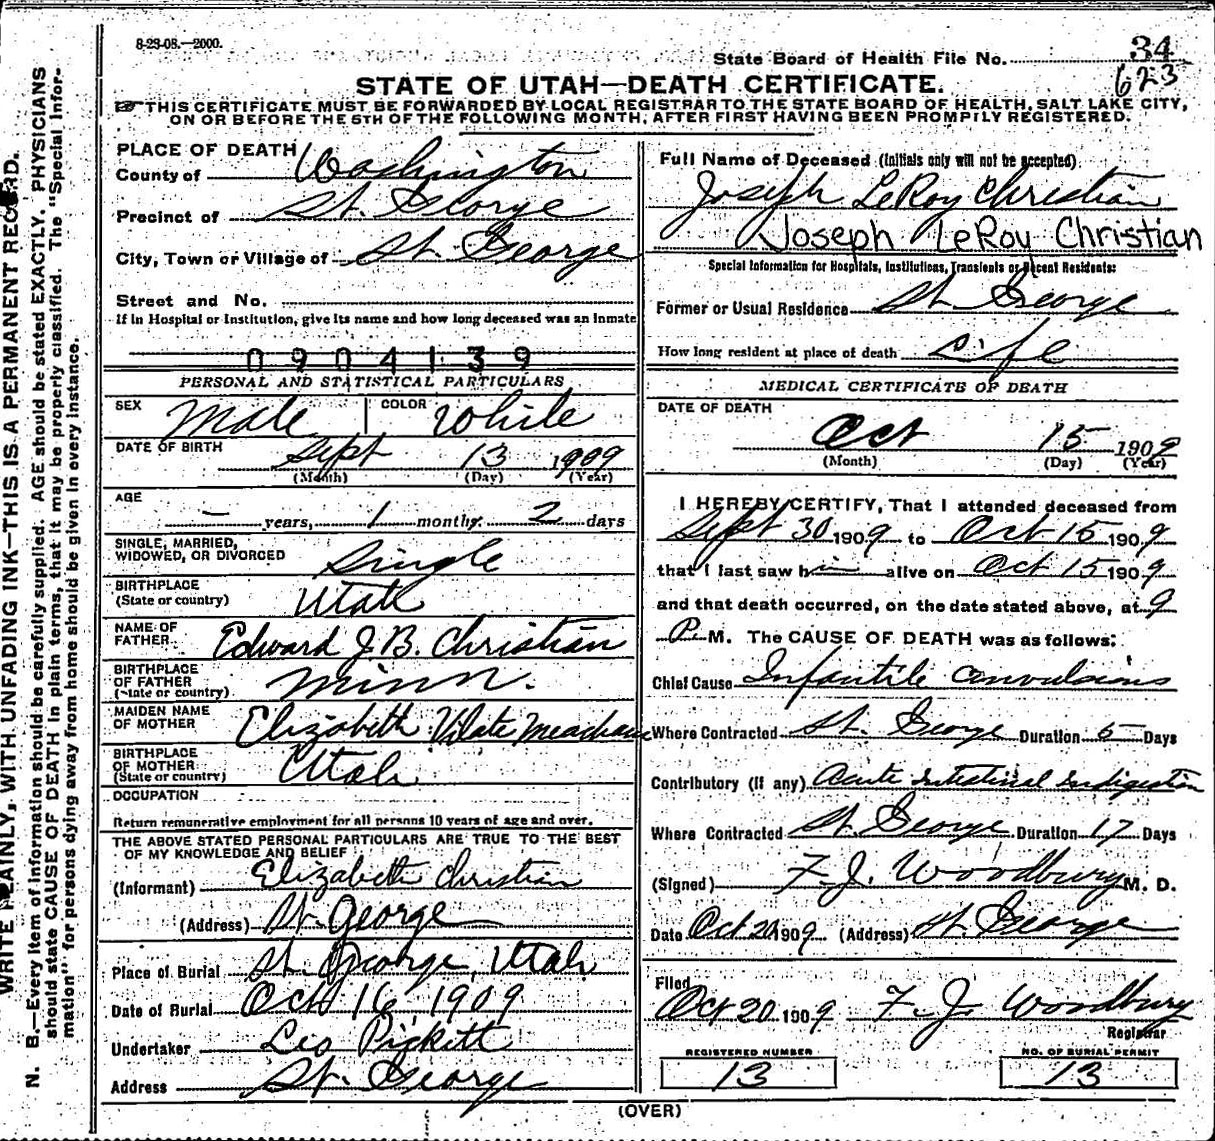 8-23-08.—2000.
State Board of Health File No. 34
623
STATE OF UTAH—DEATH CERTIFICATE.
☞ THIS CERTIFICATE MUST BE FORWARDED BY LOCAL REGISTRAR TO THE STATE BOARD OF HEALTH, SALT LAKE CITY,
ON OR BEFORE THE 5TH OF THE FOLLOWING MONTH, AFTER FIRST HAVING BEEN PROMPTLY REGISTERED.
WRITE PLAINLY, WITH UNFADING INK—THIS IS A PERMANENT RECORD.
N. B.—Every item of information should be carefully supplied. AGE should be stated EXACTLY. PHYSICIANS
should state CAUSE OF DEATH in plain terms, that it may be properly classified. The "Special Infor-
mation" for persons dying away from home should be given in every instance.
PLACE OF DEATH
County of Washington
Precinct of St. George
City, Town or Village of St. George
Street and No.
If in Hospital or Institution, give its name and how long deceased was an inmate
0904139
PERSONAL AND STATISTICAL PARTICULARS
SEX Male COLOR White
DATE OF BIRTH Sept 13 1909
(Month) (Day) (Year)
AGE
- years, 1 months 2 days
SINGLE, MARRIED,
WIDOWED, OR DIVORCED Single
BIRTHPLACE
(State or country) Utah
NAME OF
FATHER Edward J.B. Christian
BIRTHPLACE
OF FATHER
(State or country) Minn.
MAIDEN NAME
OF MOTHER Elizabeth Vilate Meacham
BIRTHPLACE
OF MOTHER
(State or country) Utah
OCCUPATION
Return remunerative employment for all persons 10 years of age and over.
THE ABOVE STATED PERSONAL PARTICULARS ARE TRUE TO THE BEST
OF MY KNOWLEDGE AND BELIEF
(Informant) Elizabeth Christian
(Address) St. George
Place of Burial St. George, Utah
Date of Burial Oct 16 1909
Undertaker Leo Pickett
Address St. George
Full Name of Deceased (Initials only will not be accepted)
Joseph LeRoy Christian
Joseph LeRoy Christian
Special Information for Hospitals, Institutions, Transients or Recent Residents:
Former or Usual Residence St George
How long resident at place of death Life
MEDICAL CERTIFICATE OF DEATH
DATE OF DEATH
Oct 15 1909
(Month) (Day) (Year)
I HEREBY CERTIFY, That I attended deceased from
Sept 30 1909 to Oct 15 1909
that I last saw him alive on Oct 15 1909
and that death occurred, on the date stated above, at 9
P. M. The CAUSE OF DEATH was as follows:
Chief Cause Infantile Convulsions
Where Contracted St. George Duration 5 Days
Contributory (if any) Acute Intestinal Indigestion
Where Contracted St. George Duration 17 Days
(Signed) F. J. Woodbury M. D.
Date Oct 20 1909 (Address) St. George
Filed
Oct 20 1909 F. J. Woodbury
Registrar
REGISTERED NUMBER NO. OF BURIAL PERMIT
13 13
(OVER)